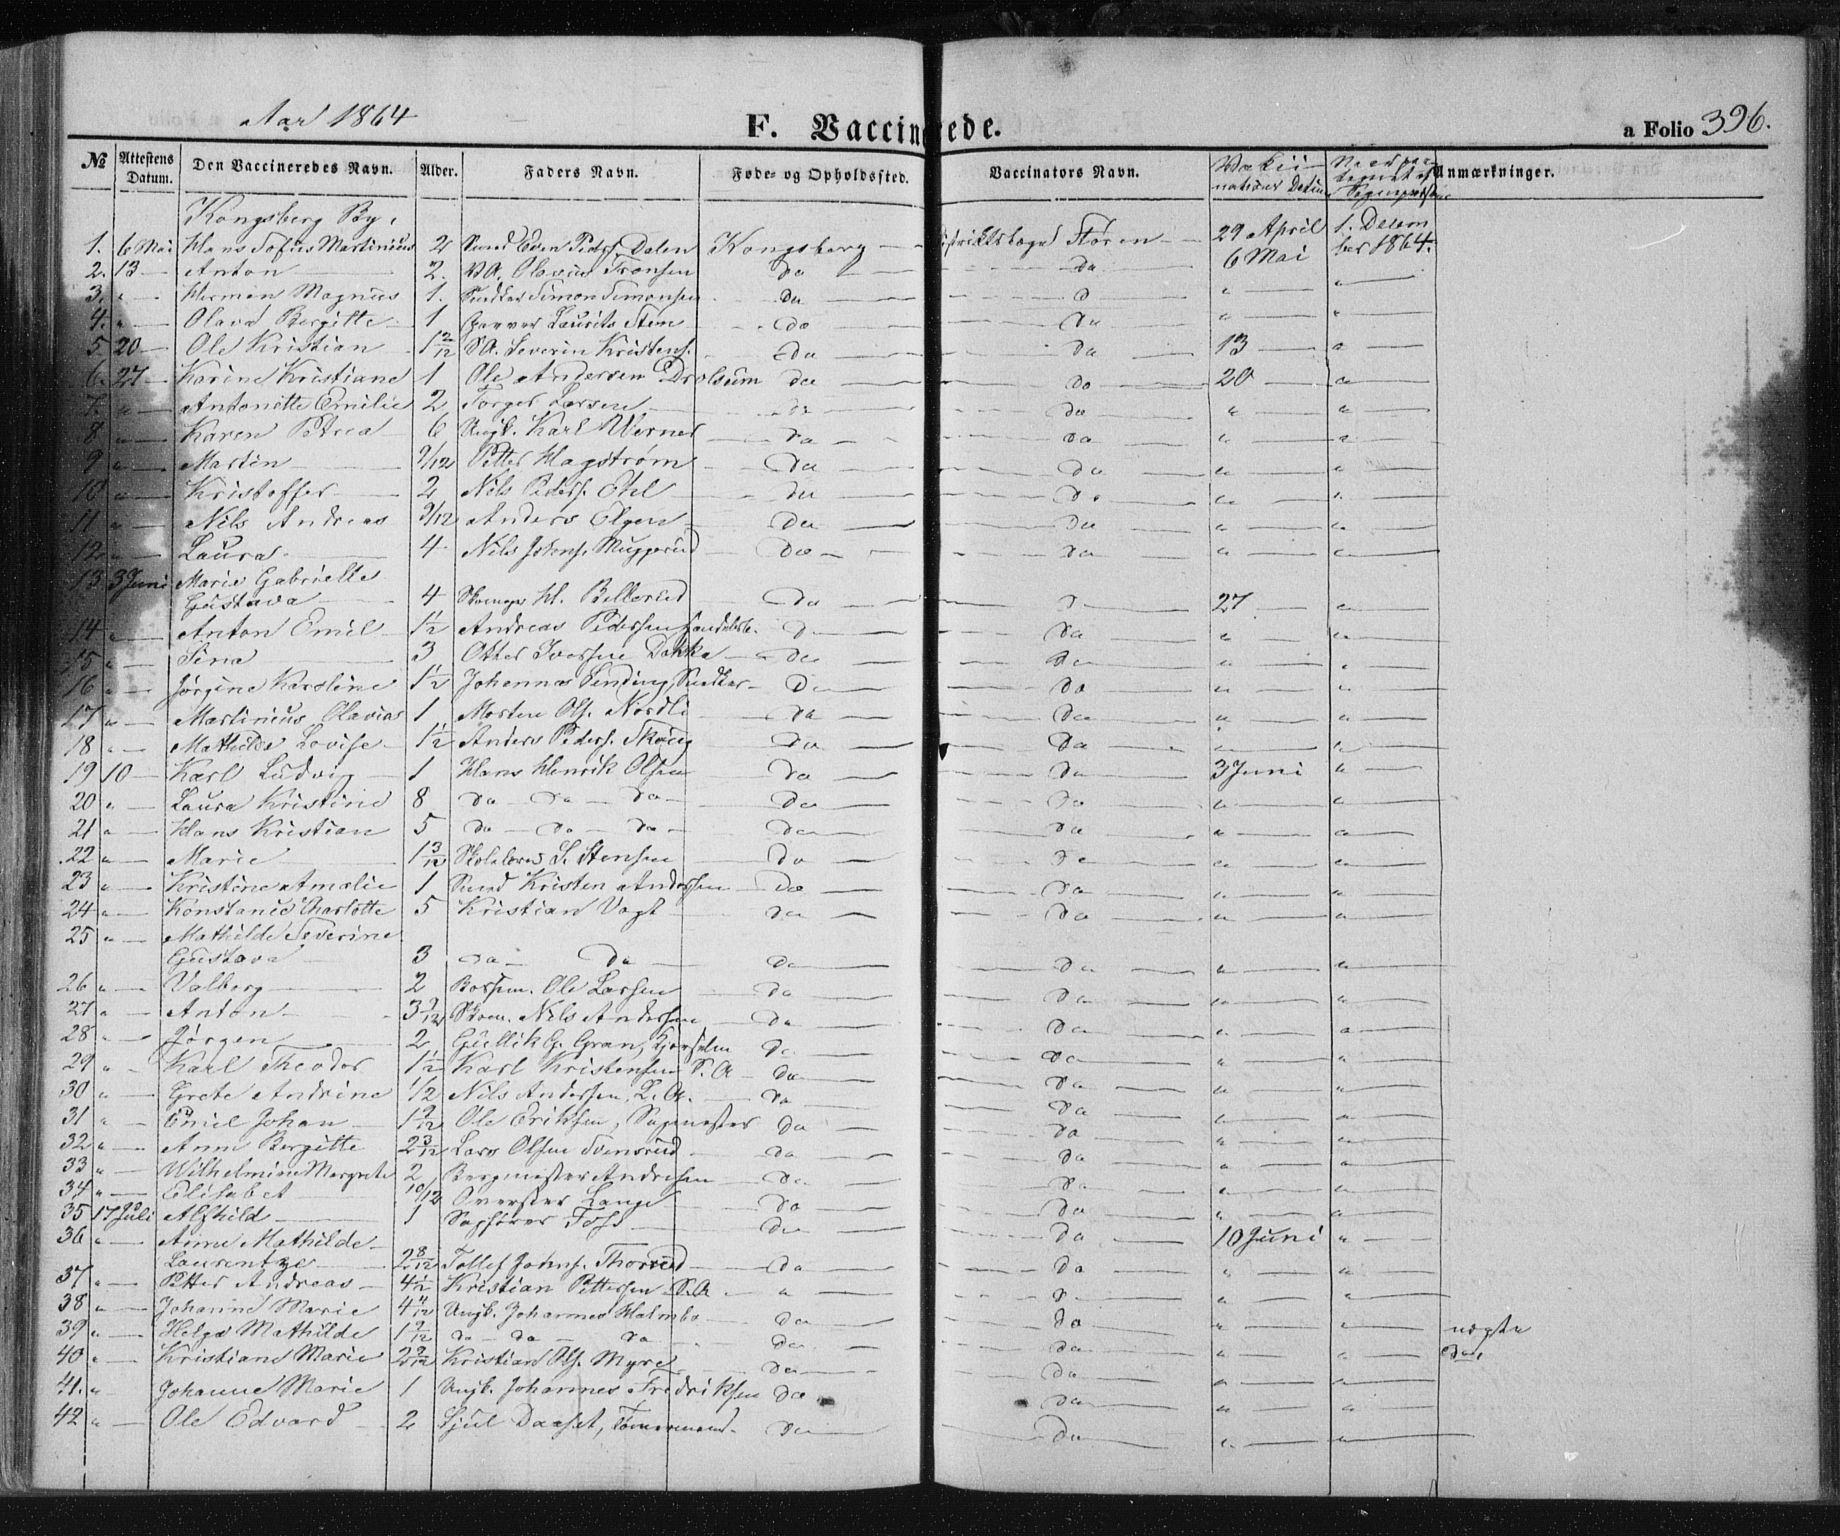 Aar 1864
F. Vaccinerede.
a Folio 396.
No Attestens Datum. Den Vaccineredes Navn. Alder. Faders Navn. Føde- og Opholdssted. Vaccinators Navn. Anmærkninger.
Kongsberg By.
1. 6 Mai Hans Tofus Martinius 2 Even Peders. Dalen Kongsberg Støren 29 April 1. Decem
2. 13 — Anton 2. Olavus Fransen Do Do 6 Mai ber 1864.
3. " — Herman Magnus 1. Simon Simonsen Do Do " "
4. " — Olava Bergitte 1 Garver Laurits Sten Do Do " "
5. 20 — Ole Kristian 1 2/12 S.A. Severin Kristens. Do Do 13 — "
6. 27 — Karine Kristiane 1 Ole Andersen Drolsum Do Do 20 — "
7. " — Antonette Emilie 2 Torger Larsen Do Do " "
8 " — Karen Petrea 6 Ungk. Karl Werner Do Do " "
9 " — Martin 9/12 Petter Hagstrøm Do Do " "
10 " — Kristoffer 2 Nils Peders. Do Do " "
11 " — Nils Andreas 9/12 Anders Elgen Do Do " "
12 " — Laura 4 Nils Johns. Muggerud Do Do " "
13 3 Juni Marie Gabrielle
Gustava 4 H. Bellerud Do Do 27 — "
14 " — Anton Emil 1/2 Andreas Pedersen Do Do " "
15 " — Sina 3 Otter Iversen Dokka Do Do " "
16 " — Jørgine Karoline 1 1/2 Johannes Sinding, Do Do " "
17 " — Martinius Olavias 1 Morten Ols. Nordli Do Do " "
18 " — Mathilde Lovise 1 1/2 Anders Peders. Do Do " "
19 10 — Karl Ludvig 1 Hans Henrik Olsen Do Do 3 Juni "
20 " — Laura Kristine 8 Do — Do — Do Do Do " "
21 " — Hans Kristian 5 Do — Do — Do Do Do " "
22 " — Marie 1 3/12 Skolelærer S. Stensen Do Do " "
23 " — Kristine Amalie 1 Kristen Andersen Do Do " "
24 " — Konstance Charlotte 5 Kristian Vogt Do Do " "
25 " — Mathilde Severine
Gustava 3 Do Do Do Do " "
26 " — Valborg 2 Ole Larsen Do Do " "
27 " — Anton 3 9/12 Nils Andersen Do Do " "
28 " — Jørgen 2 Gullik G. Gran, Do Do " "
29 " Karl Theodor 1 1/2 Karl Kristensen S.A Do Do " "
30 " Grete Andrine 1/2 Nils Andersen, L.A. Do Do " "
31 " Emil Johan 1 2/12 Ole Eriksen, Sagmester Do Do " "
32 " — Anne Bergitte 2 3/12 Lars Olsen Svensrud Do Do " "
33 " — Wilhelmine Margrete 2 Bergmester Andresen Do Do " "
34 " — Elisabet 10/12 Overster Lange Do Do " "
35 17 Juli Alfhild 1 Sagfører Foss Do Do 10 Juni "
36 " — Anne Mathilde
Laurentze 2 8/12 Tollef Johns. Thorrud Do Do " "
37 " — Petter Andreas 4 1/2 Kristian Pettersen S.A " Do " "
38 " — Johanne Marie 4 4/12 Ungk. Johannes Holmbo Do Do " "
39 " — Helga Mathilde 1 2/12 Do — Do — Do Do Do " " uægte
40 " — Kristiane Marie 2 9/12 Kristian Ols. Myre Do Do " " Do.
41. " — Johanne Marie 1 Ungk. Johannes Fredriksen Do Do " "
42 " — Ole Edvard 2 Sjul Daaset, Tømmermand. Do Do " "